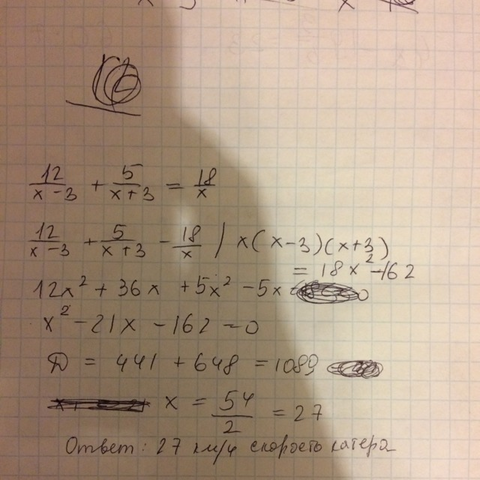 12/(x-3) + 5/(x+3) = 18/x
12/(x-3) + 5/(x+3) - 18/x / x(x-3)(x+3)
12x² + 36x + 5x² - 5x = 18x² - 162
x² - 21x - 162 = 0
D = 441 + 648 = 1089
x = 54/2 = 27
Ответ: 27 км/ч скорость катера